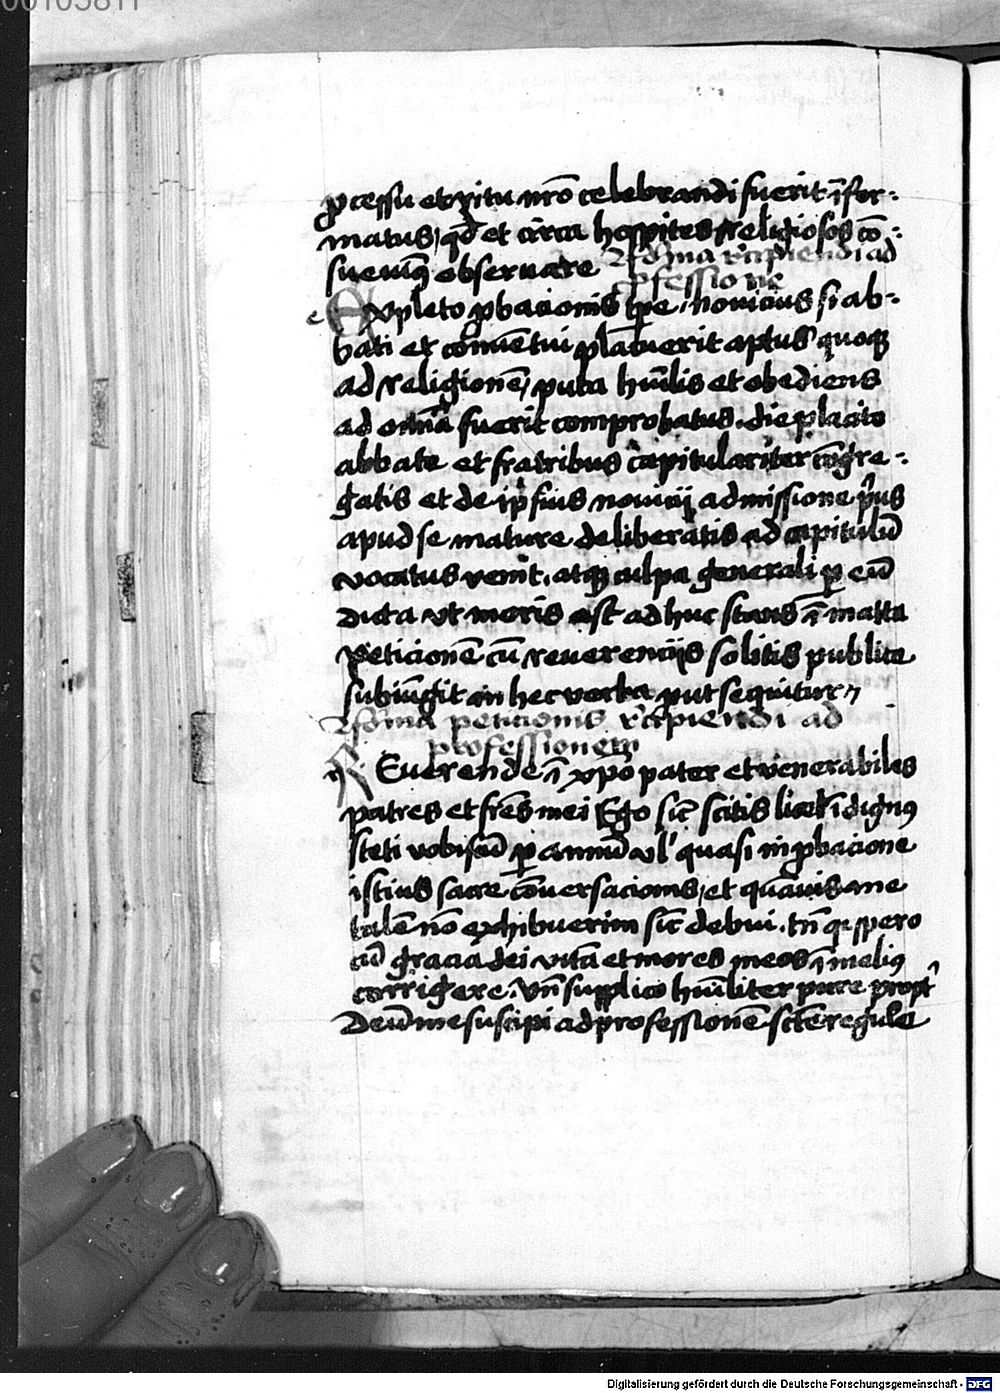 00105811
ꝓcessu et ritu nr̄o celebrandi fuerit īfor-
matus, qd̄ et circa hospites religiosos cō-
sueuim⁹ obseruare Forma r̄cipiendi ad
ꝓfessione
Expleto ꝓbacionis tp̄e, nouicius si ab-
bati et cōuētui placuerit aptus quoqꝫ
ad religionē, puta hūilis et obediens
ad om̄ia fuerit comprobatus. die placito
abbate et fratribus capitulariter cōgre-
gatis et de ip̄sius nouicij admissione pͥus
apud se mature deliberatis ad capitulū
vocatus venit. atqꝫ culpa generali ꝑ eū
dicta vt moris est adhuc stans ī matta
peticionē cū reuerencijs solitis publice
subiūgit in hec verba put sequitur
Forma peticionis r̄cipiendi ad
professionem
REuerende ī xp̄o pater et venerabiles
patres et fr̄es mei Ego sic̄ scitis licet īdignus
steti vobiscū ꝑ annū vl̓ quasi in ꝓbacione
istius sacre cōuersacionis, et quāuis me
talē nō exhibuerim sic̄ debui. tn̄ qꝛ spero
cū gracia dei vitā et mores meos ī melius
corrigere. Vn̄ supplico hūiliter pure propt̓
Deū me suscipi ad professionē sctē regule
Digitalisierung gefördert durch die Deutsche Forschungsgemeinschaft - DFG